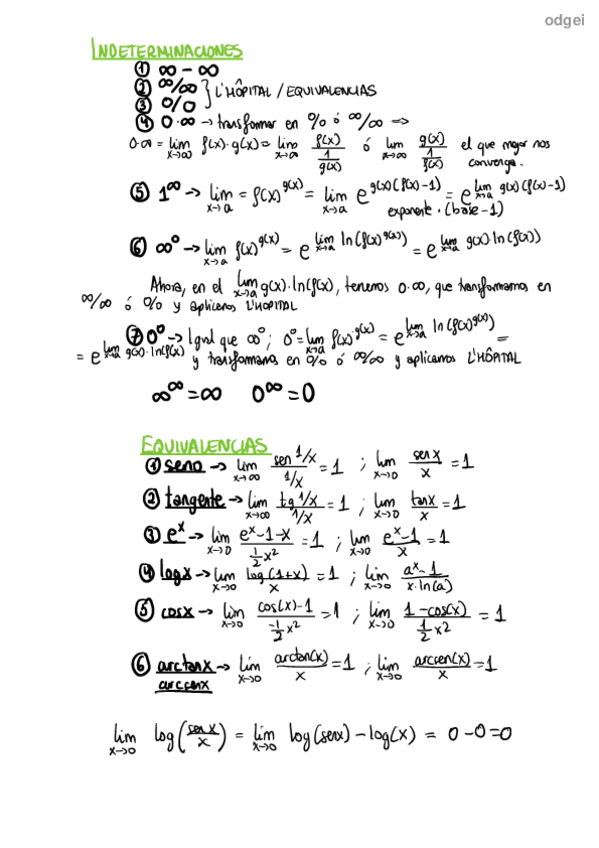 odgei
INDETERMINACIONES
① ∞ - ∞
② ∞/∞
③ 0/0 } L'HÔPITAL / EQUIVALENCIAS
④ 0·∞ → transformar en 0/0 ó ∞/∞ ⇒
0·∞ = lim x→∞ f(x)·g(x) = lim x→∞ f(x)/(1/g(x)) ó lim x→∞ g(x)/(1/f(x)) el que mejor nos
converga.
⑤ 1^∞ → lim x→a = f(x)^g(x) = lim x→a e^g(x)(f(x)-1) = e^lim x→a g(x)(f(x)-1)
exponente · (base-1)
⑥ ∞^0 → lim x→a f(x)^g(x) = e^lim x→a ln(f(x)^g(x)) = e^lim x→a g(x)·ln(f(x))
Ahora, en el lim x→a g(x)·ln(f(x), tenemos 0·∞, que transformamos en
∞/∞ ó 0/0 y aplicamos L'HOPITAL
⑦ 0^0 → Igual que ∞^0; 0^0 = lim x→a f(x)^g(x) = e^lim x→a ln(f(x)^g(x)) =
= e^lim x→a g(x)·ln(f(x) y transformamos en 0/0 ó ∞/∞ y aplicamos L'HÔPITAL
∞^∞ = ∞ 0^∞ = 0
EQUIVALENCIAS
① seno → lim x→∞ sen 1/x / 1/x = 1 ; lim x→0 sen x / x = 1
② tangente → lim x→∞ tg 1/x / 1/x = 1 ; lim x→0 tan x / x = 1
③ e^x → lim x→0 (e^x-1-x)/(1/2 x²) = 1 ; lim x→0 (e^x-1)/x = 1
④ log x → lim x→0 log(1+x)/x = 1 ; lim x→0 (a^x-1)/(x·ln(a))
⑤ cos x → lim x→0 (cos(x)-1)/(-1/2 x²) = 1 ; lim x→0 (1-cos(x))/(1/2 x²) = 1
⑥ arctan x → lim x→0 arctan(x)/x = 1 ; lim x→0 arcsen(x)/x = 1
arcsen x
lim x→0 log(sen x / x) = lim x→0 log(sen x) - log(x) = 0-0=0